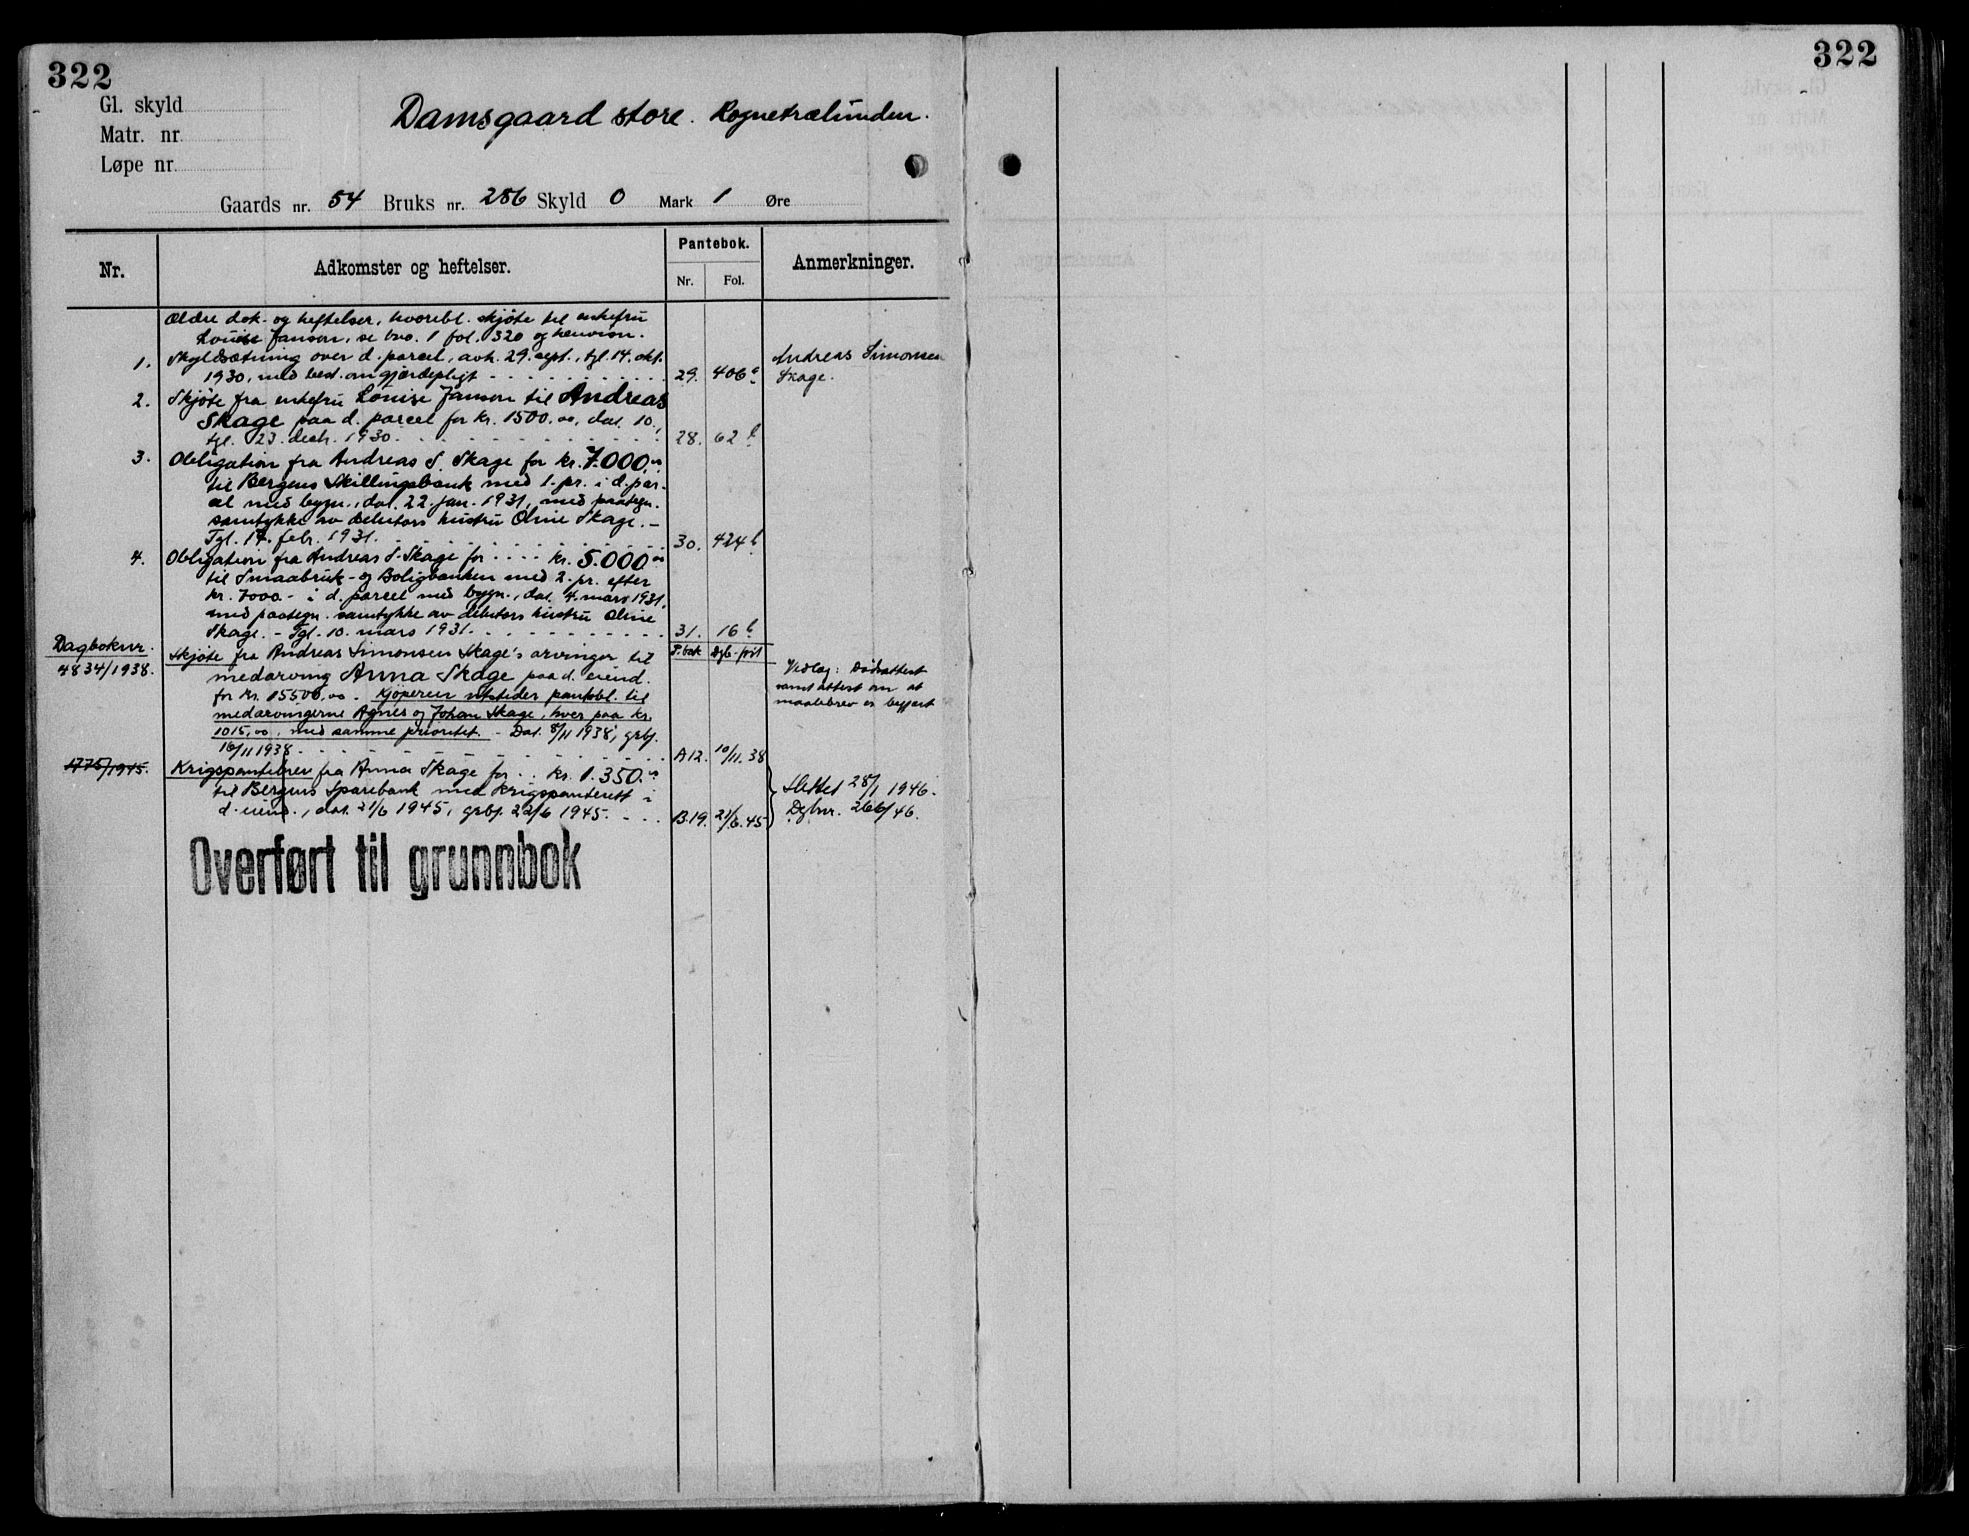 322
322
Gl. skyld
Matr. nr.
Løpe nr.
Damsgaard store. Rognetrælunden.
Gaards nr. 54 Bruks nr. 286 Skyld 0 Mark 1 Øre
Nr. Adkomster og heftelser. Pantebok. Nr. Fol. Anmerkninger.
Ældre dok. og heftelser, hvoribl. skjøte til enkefru
Louise Janson, se bro. 1 fol. 320 og henvisn.
1. Skyldsætning over d. parcel, avh. 29. sept., tgl. 14. okt.
1930, med best. om gjærdepligt 29. 406
Andreas Simonsen
Skage.
2. Skjøte fra enkefru Louise Janson til Andreas
Skage paa d. parcel for kr. 1500.00, dat. 10.,
tgl. 23. decbr. 1930. 28. 62 b
3. Obligation fra Andreas S. Skage for kr. 7.000.00
til Bergens Skillingsbank med 1. pr. i d. par-
cel med bygn., dat. 22. jan. 1931, med paategn.
samtykke av debitors hustru Oline Skage. –
Tgl. 17. febr. 1931. 30. 424 b
4. Obligation fra Andreas S. Skage for kr. 5.000.00
til Smaabruk- og Boligbanken med 2. pr. efter
kr. 7000.- i d. parcel med bygn., dat. 4. mars 1931,
med paategn. samtykke av debitors hustru Oline
Skage. – Tgl. 10. mars 1931. 31. 16 b
Dagboknr.
4834/1938.
P.bok Dgb.-ført
Skjøte fra Andreas Simonsen Skage's arvinger til
medarving Anna Skage paa d. eiend.
for kr. 15500,00. Kjøperen utsteder pantobl. til
medarvingerne Agnes og Johan Skage, hver paa kr.
1015,00, med samme prioritet. – Dat. 8/11 1938, grbf.
10/11 1938 A12. 10/11.38
Vedlag: Dødsattest
samt attest om at
maalebrev er begjært
1775/1945. Krigspantebrev fra Anna Skage for kr. 1.350.00
til Bergens Sparebank med krigspanterett i
d. eiend., dat. 21/6 1945, grbf. 22/6 1945. B.19. 21/6.45
Slettet 28/1 1946.
Dgbnr. 266/46.
Overført til grunnbok